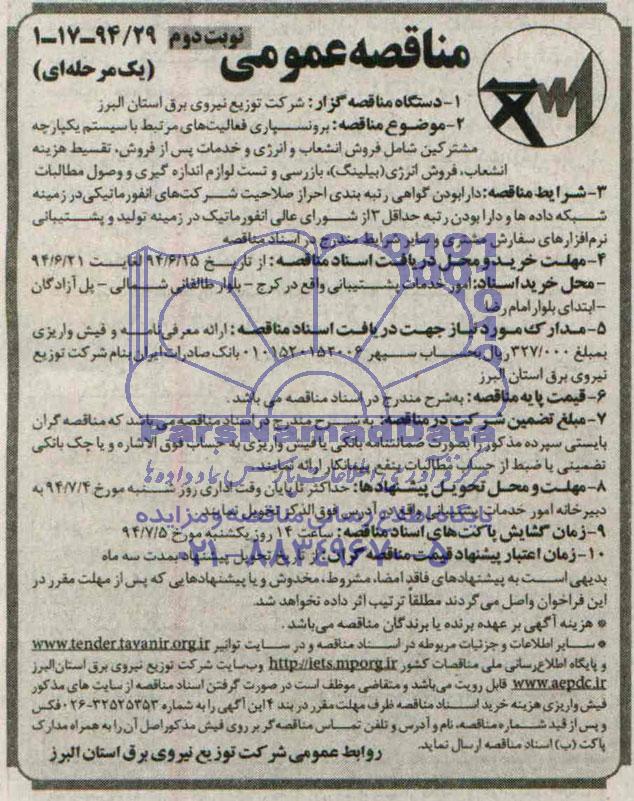 مناقصه عمومی
نوبت دوم
۹۴/۲۹-۱۷-۱
(یک مرحله‌ای)
۱-دستگاه مناقصه گزار: شرکت توزیع نیروی برق استان البرز
۲-موضوع مناقصه: برونسپاری فعالیت‌های مرتبط با سیستم یکپارچه
مشترکین شامل فروش انشعاب و انرژی و خدمات پس از فروش، تقسیط هزینه
انشعاب، فروش انرژی(بیلینگ)، بازرسی و تست لوازم اندازه گیری و وصول مطالبات
۳-شرایط مناقصه: دارابودن گواهی رتبه بندی احراز صلاحیت شرکت‌های انفورماتیکی در زمینه
شبکه داده ها و دارا بودن رتبه حداقل ۳ از شورای عالی انفورماتیک در زمینه تولید و پشتیبانی
نرم‌افزارهای سفارش مشتری و سایر شرایط مندرج در اسناد مناقصه
۴-مهلت خرید و محل دریافت اسناد مناقصه: از تاریخ ۹۴/۶/۱۵ لغایت ۹۴/۶/۲۱
-محل خرید اسناد: امور خدمات پشتیبانی واقع در کرج - بلوار طالقانی شمالی - پل آزادگان
-ابتدای بلوار امام رضا
۵-مدارک مورد نیاز جهت دریافت اسناد مناقصه: ارائه معرفی‌نامه و فیش واریزی
بمبلغ ۳۲۷/۰۰۰ ریال بحساب سپهر ۰۱۰۱۵۲۰۱۵۲۰۰۶ بانک صادرات ایران بنام شرکت توزیع
نیروی برق استان البرز
۶-قیمت پایه مناقصه: به‌شرح مندرج در اسناد مناقصه می باشد.
۷-مبلغ تضمین شرکت در مناقصه: به شرح مندرج در اسناد مناقصه می‌باشد که مناقصه گران
بایستی سپرده مذکور را بصورت ضمانتنامه بانکی یا فیش واریزی به حساب فوق الاشاره و یا چک بانکی
تضمینی یا ضبط از حساب مطالبات بنفع پیمانکار ارائه نمایند.
۸-مهلت و محل تحویل پیشنهادها: حداکثر تا پایان وقت اداری روز شنبه مورخ ۹۴/۷/۴ به
دبیرخانه امور خدمات پشتیبانی واقع در آدرس فوق‌الذکر تحویل نمایند.
۹-زمان گشایش پاکت‌های اسناد مناقصه: ساعت ۱۴ روز یکشنبه مورخ ۹۴/۷/۵
۱۰-زمان اعتبار پیشنهاد قیمت مناقصه گران: از تاریخ تحویل پیشنهاد بمدت سه ماه
بدیهی است به پیشنهادهای فاقد امضا، مشروط، مخدوش و یا پیشنهادهایی که پس از مهلت مقرر در
این فراخوان واصل می‌گردند مطلقاً ترتیب اثر داده نخواهد شد.
* هزینه آگهی بر عهده برنده یا برندگان مناقصه می‌باشد.
* سایر اطلاعات و جزئیات مربوطه در اسناد مناقصه و در سایت توانیر www.tender.tavanir.org.ir
و پایگاه اطلاع‌رسانی ملی مناقصات کشور http://iets.mporg.ir وب‌سایت شرکت توزیع نیروی برق استان‌البرز
www.aepdc.ir قابل رویت می‌باشد و متقاضی موظف است در صورت گرفتن اسناد مناقصه از سایت های مذکور
فیش واریزی هزینه خرید اسناد مناقصه ظرف مهلت مقرر در بند ۴ این آگهی را به شماره ۳۲۵۲۵۳۵۳-۰۲۶ فکس
و پس از قید شماره مناقصه، نام و آدرس و تلفن تماس مناقصه گر بر روی فیش مذکور اصل آن را به همراه مدارک
پاکت (ب) اسناد مناقصه ارسال نماید.
روابط عمومی شرکت توزیع نیروی برق استان البرز
ParsNamadData
پایگاه اطلاع رسانی مناقصه و مزایده
۰۲۱-۸۸۳۴۹۶۷۰-۵